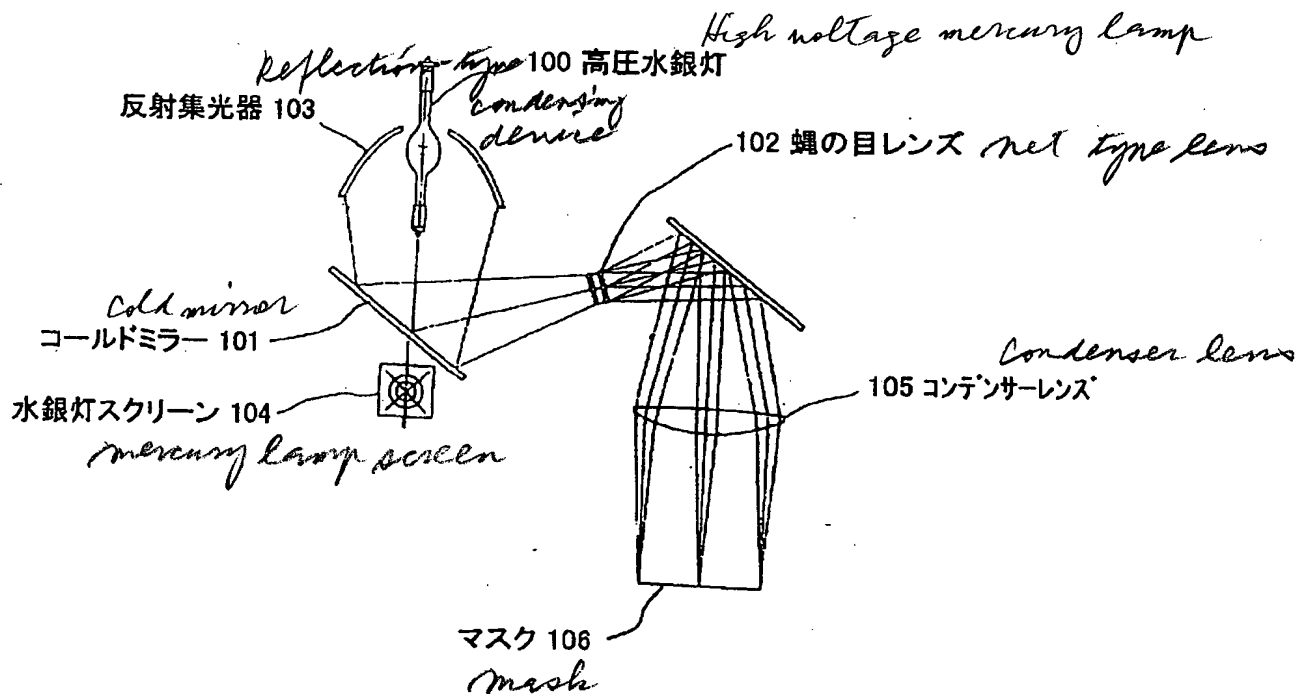 High voltage mercury lamp
Reflection-type
100 高圧水銀灯
反射集光器 103
condensing
device
102 蝿の目レンズ
net type lens
cold mirror
コールドミラー 101
condenser lens
105 コンデンサーレンズ
水銀灯スクリーン 104
mercury lamp screen
マスク 106
mask